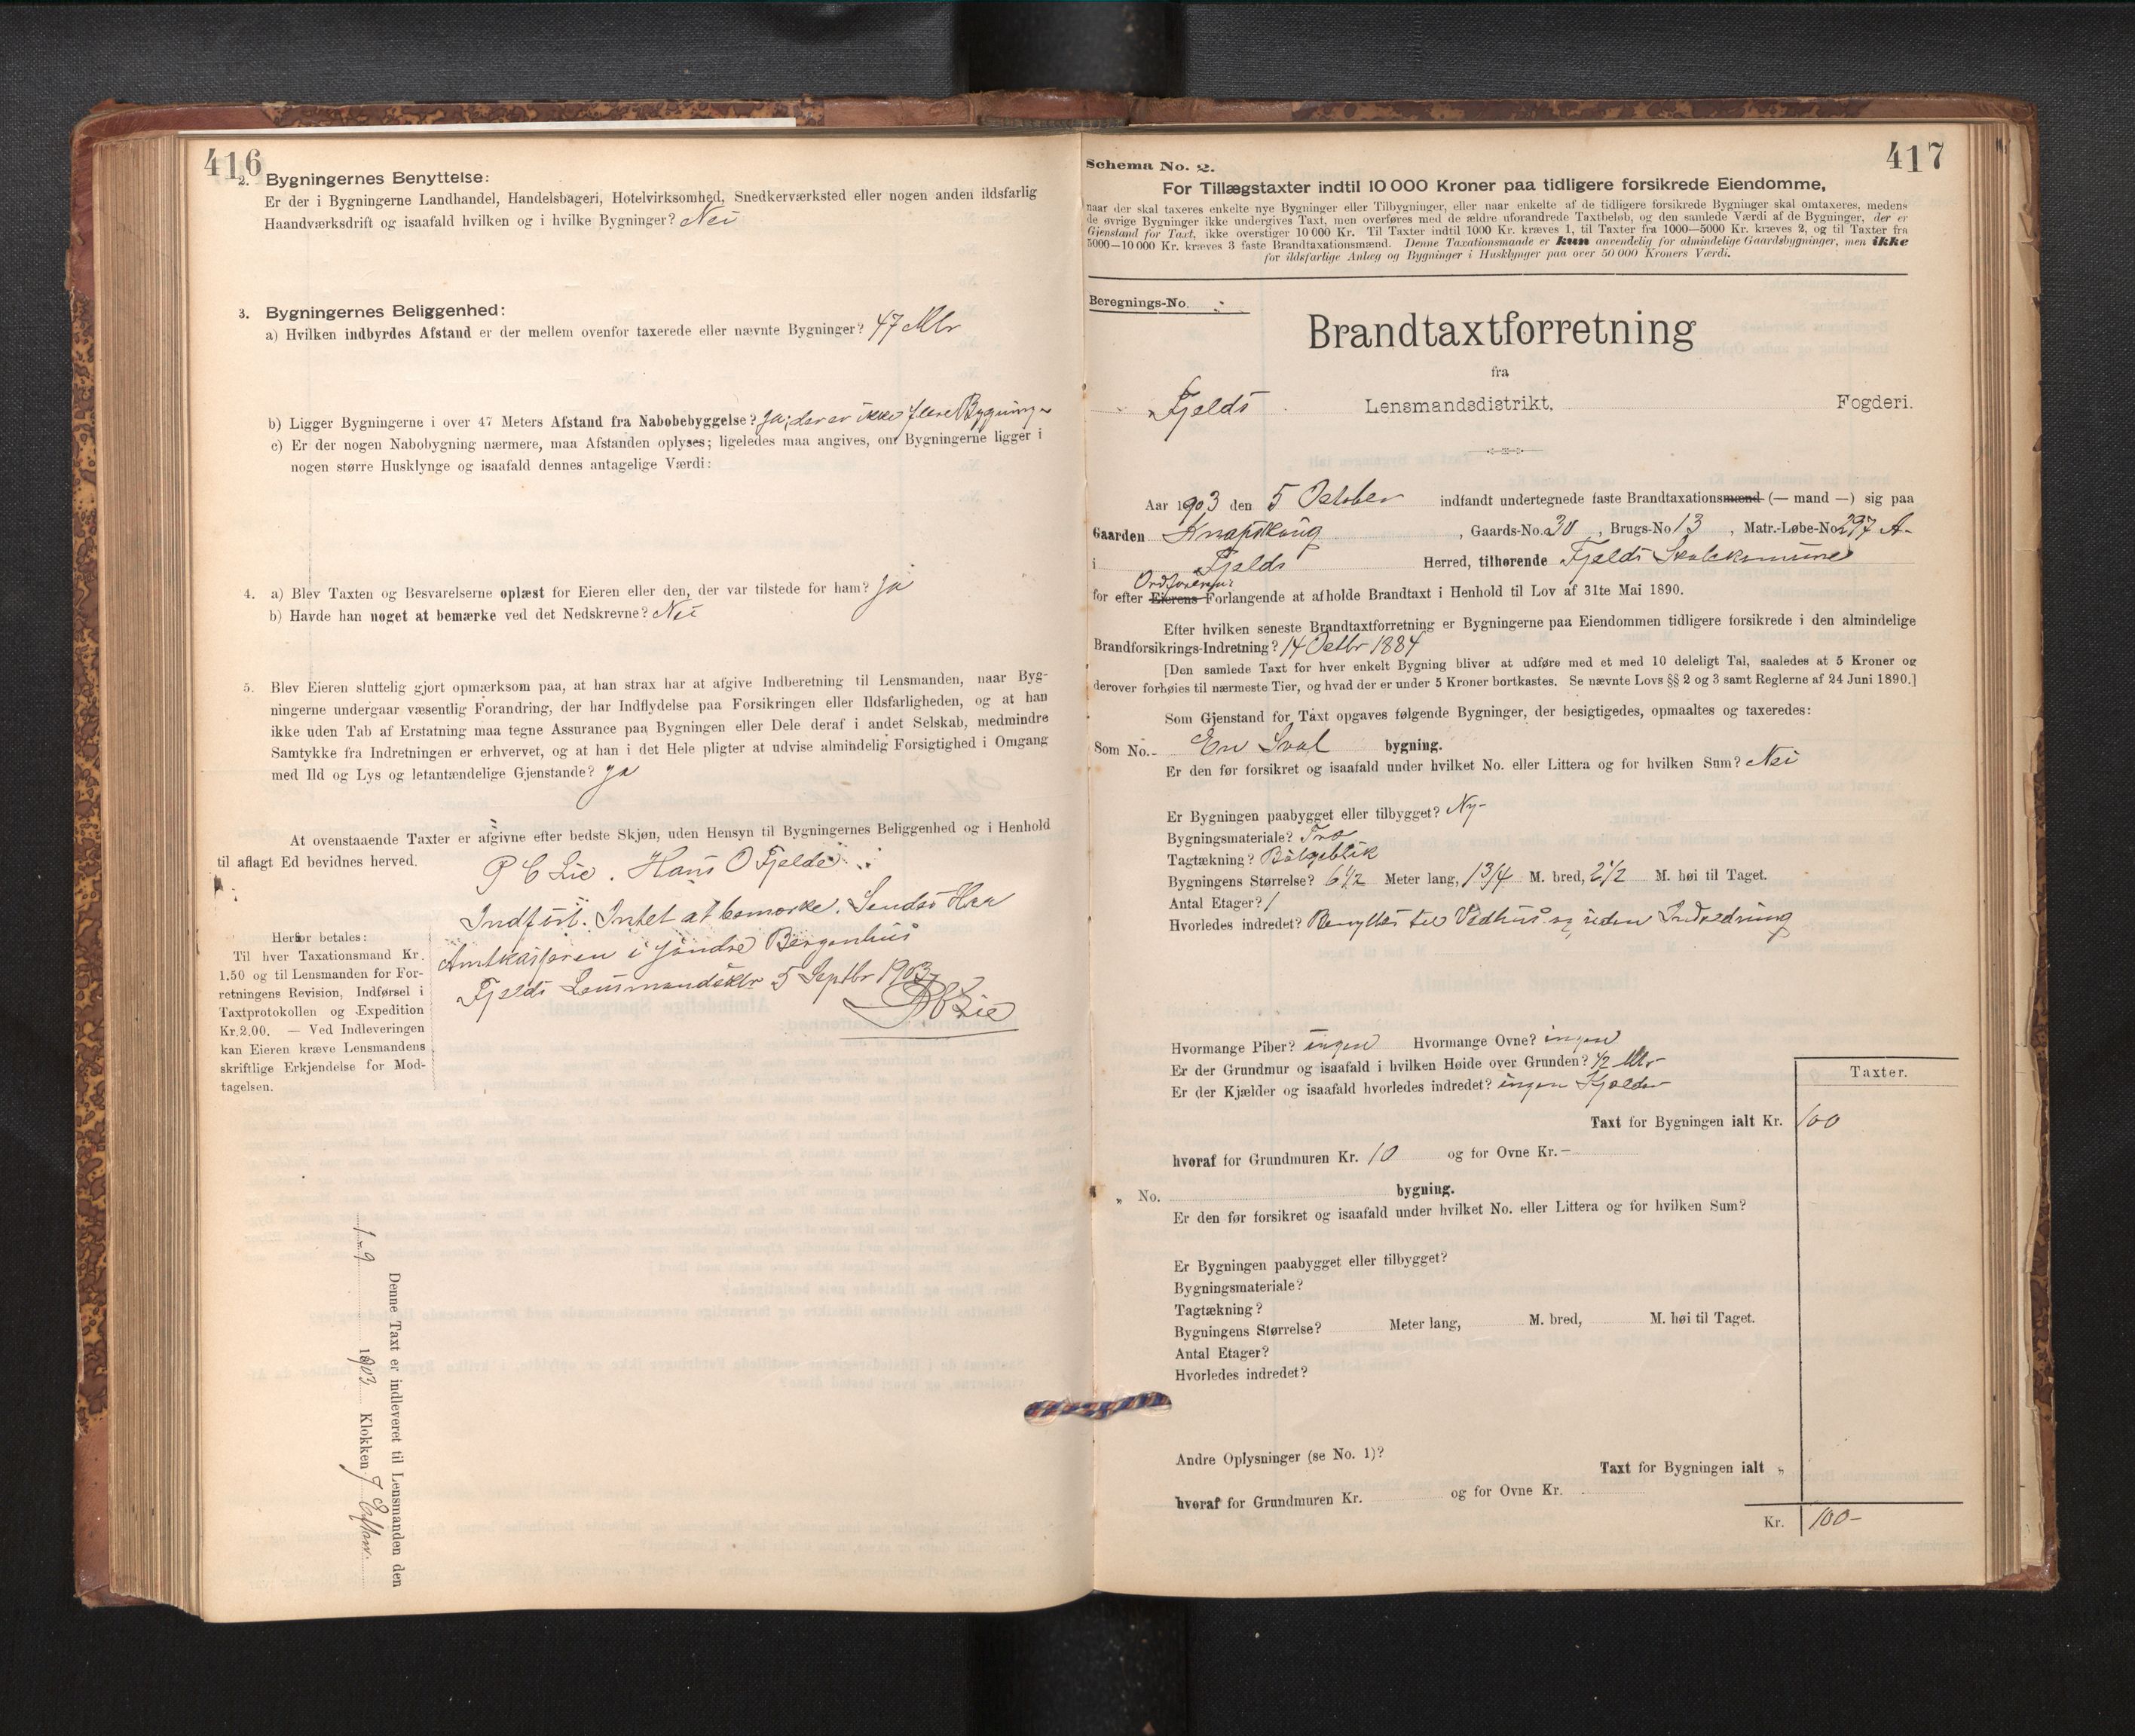 416
2. Bygningernes Benyttelse:
Er der i Bygningerne Landhandel, Handelsbageri, Hotelvirksomhed, Snedkerværksted eller nogen anden ildsfarlig
Haandværksdrift og isaafald hvilken og i hvilke Bygninger? Nei
3. Bygningernes Beliggenhed:
a) Hvilken indbyrdes Afstand er der mellem ovenfor taxerede eller nævnte Bygninger? 47 Mtr
b) Ligger Bygningerne i over 47 Meters Afstand fra Nabobebyggelse? Ja, der er ikke flere Bygninger
c) Er der nogen Nabobygning nærmere, maa Afstanden oplyses; ligeledes maa angives, om Bygningerne ligger i
nogen større Husklynge og isaafald dennes antagelige Værdi:
4. a) Blev Taxten og Besvarelserne oplæst for Eieren eller den, der var tilstede for ham? Ja
b) Havde han noget at bemærke ved det Nedskrevne? Nei
5. Blev Eieren sluttelig gjort opmærksom paa, at han strax har at afgive Indberetning til Lensmanden, naar Byg-
ningerne undergaar væsentlig Forandring, der har Indflydelse paa Forsikringen eller Ildsfarligheden, og at han
ikke uden Tab af Erstatning maa tegne Assurance paa Bygningen eller Dele deraf i andet Selskab, medmindre
Samtykke fra Indretningen er erhvervet, og at han i det Hele pligter at udvise almindelig Forsigtighed i Omgang
med Ild og Lys og letantændelige Gjenstande? Ja
At ovenstaaende Taxter er afgivne efter bedste Skjøn, uden Hensyn til Bygningernes Beliggenhed og i Henhold
til aflagt Ed bevidnes herved.
P C Lie. Hans O Fjelde
Indført. Intet at bemærke. Sendes Hrr
Amtkasseren i Søndre Bergenhus
Fjelds Lensmandsktr 5 Septbr 1903
P C Lie
Herfor betales:
Til hver Taxationsmand Kr.
1.50 og til Lensmanden for For-
retningens Revision, Indførsel i
Taxtprotokollen og Expedition
Kr.2.00. — Ved Indleveringen
kan Eieren kræve Lensmandens
skriftlige Erkjendelse for Mod-
tagelsen.
Denne Taxt er indleveret til Lensmanden den
1-9 1903 Klokken 7 Efterm.
417
Schema No. 2.
For Tillægstaxter indtil 10 000 Kroner paa tidligere forsikrede Eiendomme,
naar der skal taxeres enkelte nye Bygninger eller Tilbygninger, eller naar enkelte af de tidligere forsikrede Bygninger skal omtaxeres, medens
de øvrige Bygninger ikke undergives Taxt, men overføres med de ældre uforandrede Taxtbeløb, og den samlede Værdi af de Bygninger, der er
Gjenstand for Taxt, ikke overstiger 10 000 Kr. Til Taxter indtil 1000 Kr. kræves 1, til Taxter fra 1000—5000 Kr. kræves 2, og til Taxter fra
5000—10 000 Kr. kræves 3 faste Brandtaxationsmænd. Denne Taxationsmaade er kun anvendelig for almindelige Gaardsbygninger, men ikke
for ildsfarlige Anlæg og Bygninger i Husklynger paa over 50 000 Kroners Værdi.
Beregnings-No.
Brandtaxtforretning
fra
Fjelds Lensmandsdistrikt, Fogderi.
Aar 1903 den 5 October indfandt undertegnede faste Brandtaxationsmænd (— mand —) sig paa
Gaarden Knapskoug, Gaards-No. 30, Brugs-No 13, Matr.-Løbe-No 297 A-
i Fjelds Herred, tilhørende Fjelds Skolekomune
Ordførerens
for efter Eierens Forlangende at afholde Brandtaxt i Henhold til Lov af 31te Mai 1890.
Efter hvilken seneste Brandtaxtforretning er Bygningerne paa Eiendommen tidligere forsikrede i den almindelige
Brandforsikrings-Indretning? 14 Octbr 1884
[Den samlede Taxt for hver enkelt Bygning bliver at udføre med et med 10 deleligt Tal, saaledes at 5 Kroner og
derover forhøies til nærmeste Tier, og hvad der er under 5 Kroner bortkastes. Se nævnte Lovs §§ 2 og 3 samt Reglerne af 24 Juni 1890.]
Som Gjenstand for Taxt opgaves følgende Bygninger, der besigtigedes, opmaaltes og taxeredes:
Som No. - En Sval bygning.
Er den før forsikret og isaafald under hvilket No. eller Littera og for hvilken Sum? Nei
Er Bygningen paabygget eller tilbygget? Ny-
Bygningsmateriale? Træ
Tagtækning? Bølgeblik
Bygningens Størrelse? 6 1/2 Meter lang, 1 3/4 M. bred, 2 1/2 M. høi til Taget.
Antal Etager? 1
Hvorledes indredet? Benyttes til Vedhus og uden Indredning
Hvormange Piber? ingen Hvormange Ovne? ingen
Er der Grundmur og isaafald i hvilken Høide over Grunden? 1/2 Mtr
Er der Kjælder og isaafald hvorledes indredet? ingen Kjælder
Taxter.
Taxt for Bygningen ialt Kr. 100
hvoraf for Grundmuren Kr. 10 og for Ovne Kr. -
„ No. bygning.
Er den før forsikret og isaafald under hvilket No. eller Littera og for hvilken Sum?
Er Bygningen paabygget eller tilbygget?
Bygningsmateriale?
Tagtækning?
Bygningens Størrelse? Meter lang, M. bred, M. høi til Taget.
Antal Etager?
Hvorledes indredet?
Andre Oplysninger (se No. 1)?
Taxt for Bygningen ialt „
hvoraf for Grundmuren Kr. og for Ovne Kr.
Kr. 100-